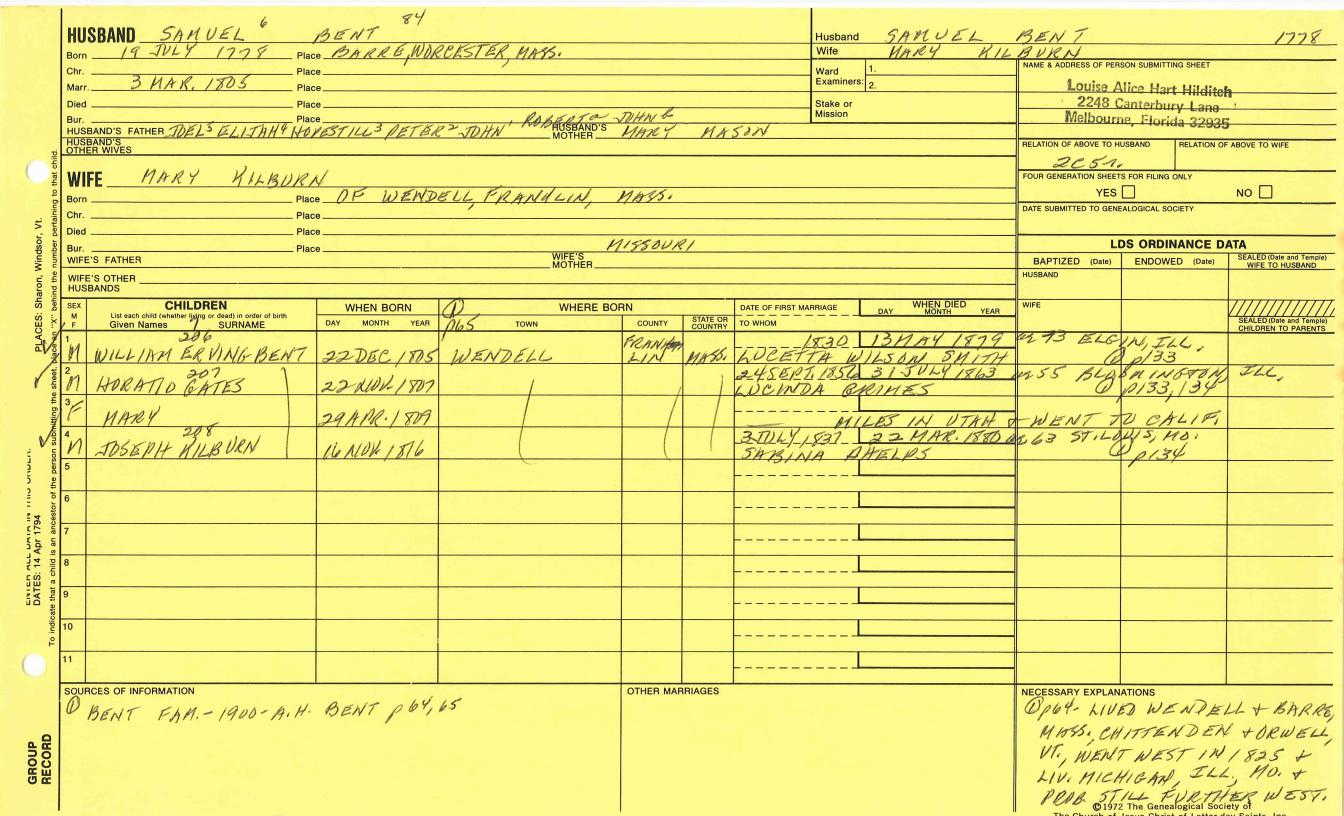 HUSBAND SAMUEL 6 BENT 84
Born 19 JULY 1778 Place BARRE, WORCESTER, MASS.
Chr. Place
Marr. 3 MAR. 1805 Place
Died Place
Bur. Place
HUSBAND'S FATHER JOEL5 ELIJAH4 HOPESTILL3 PETER2 JOHN1 ROBERT a JOHN b HUSBAND'S MOTHER MARY MASON
HUSBAND'S OTHER WIVES
WIFE MARY KILBURN
Born Place OF WENDELL, FRANKLIN, MASS.
Chr. Place
Died Place
Bur. Place MISSOURI
WIFE'S FATHER WIFE'S MOTHER
WIFE'S OTHER HUSBANDS
Husband SAMUEL BENT 1778
Wife MARY KILBURN
Ward Examiners: 1.
2.
Stake or Mission
NAME & ADDRESS OF PERSON SUBMITTING SHEET
Louise Alice Hart Hilditch
2248 Canterbury Lane
Melbourne, Florida 32935
RELATION OF ABOVE TO HUSBAND RELATION OF ABOVE TO WIFE
2C5r.
FOUR GENERATION SHEETS FOR FILING ONLY
YES NO
DATE SUBMITTED TO GENEALOGICAL SOCIETY
LDS ORDINANCE DATA
BAPTIZED (Date) ENDOWED (Date) SEALED (Date and Temple) WIFE TO HUSBAND
HUSBAND
WIFE
SEALED (Date and Temple) CHILDREN TO PARENTS
SEX M F
CHILDREN
List each child (whether living or dead) in order of birth
Given Names 7 SURNAME
WHEN BORN
DAY MONTH YEAR
① p65 WHERE BORN
TOWN COUNTY STATE OR COUNTRY
DATE OF FIRST MARRIAGE
TO WHOM
WHEN DIED
DAY MONTH YEAR
1 M 206 WILLIAM ERVING BENT 22 DEC 1805 WENDELL FRANKLIN MASS. 1830 13 MAY 1879 æ 73 ELGIN, ILL.
LUCETTA WILSON SMITH ① p133
2 M 207 HORATIO GATES 22 NOV. 1807 24 SEPT. 1856 31 JULY 1863 æ 55 BLOOMINGTON, ILL.
LUCINDA GRIMES ① p133, 134
3 F MARY 29 APR. 1809
— MILES IN UTAH & WENT TO CALIF.
4 M 208 JOSEPH KILBURN 16 NOV 1816 3 JULY 1837 22 MAR. 1880 æ 63 ST. LOUIS, MO.
SABINA PHELPS ① p134
5
6
7
8
9
10
11
SOURCES OF INFORMATION
① BENT FAM. - 1900 - A.H. BENT p 64, 65
OTHER MARRIAGES
NECESSARY EXPLANATIONS
① p64 - LIVED WENDELL & BARRE,
MASS., CHITTENDEN & ORWELL,
VT., WENT WEST IN 1825 &
LIV. MICHIGAN, ILL, MO. &
PROB STILL FURTHER WEST.
©1972 The Genealogical Society of
The Church of Jesus Christ of Latter-day Saints, Inc.
PLACES: Sharon, Windsor, Vt.
ENTER ALL DATA IN THIS ORDER:
DATES: 14 Apr 1794
To indicate that a child is an ancestor of the person submitting the sheet, place an "X" behind the number pertaining to that child.
GROUP RECORD